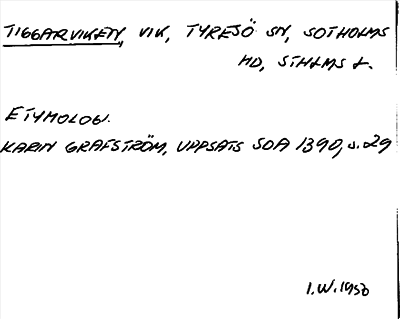 TIGGARVIKEN, VIK, TYRESÖ SN, SOTHOLMS
HD, STHLMS L.
ETYMOLOGI.
KARIN GRAFSTRÖM, UPPSATS SOA 1390, s. 29
I.W. 1950